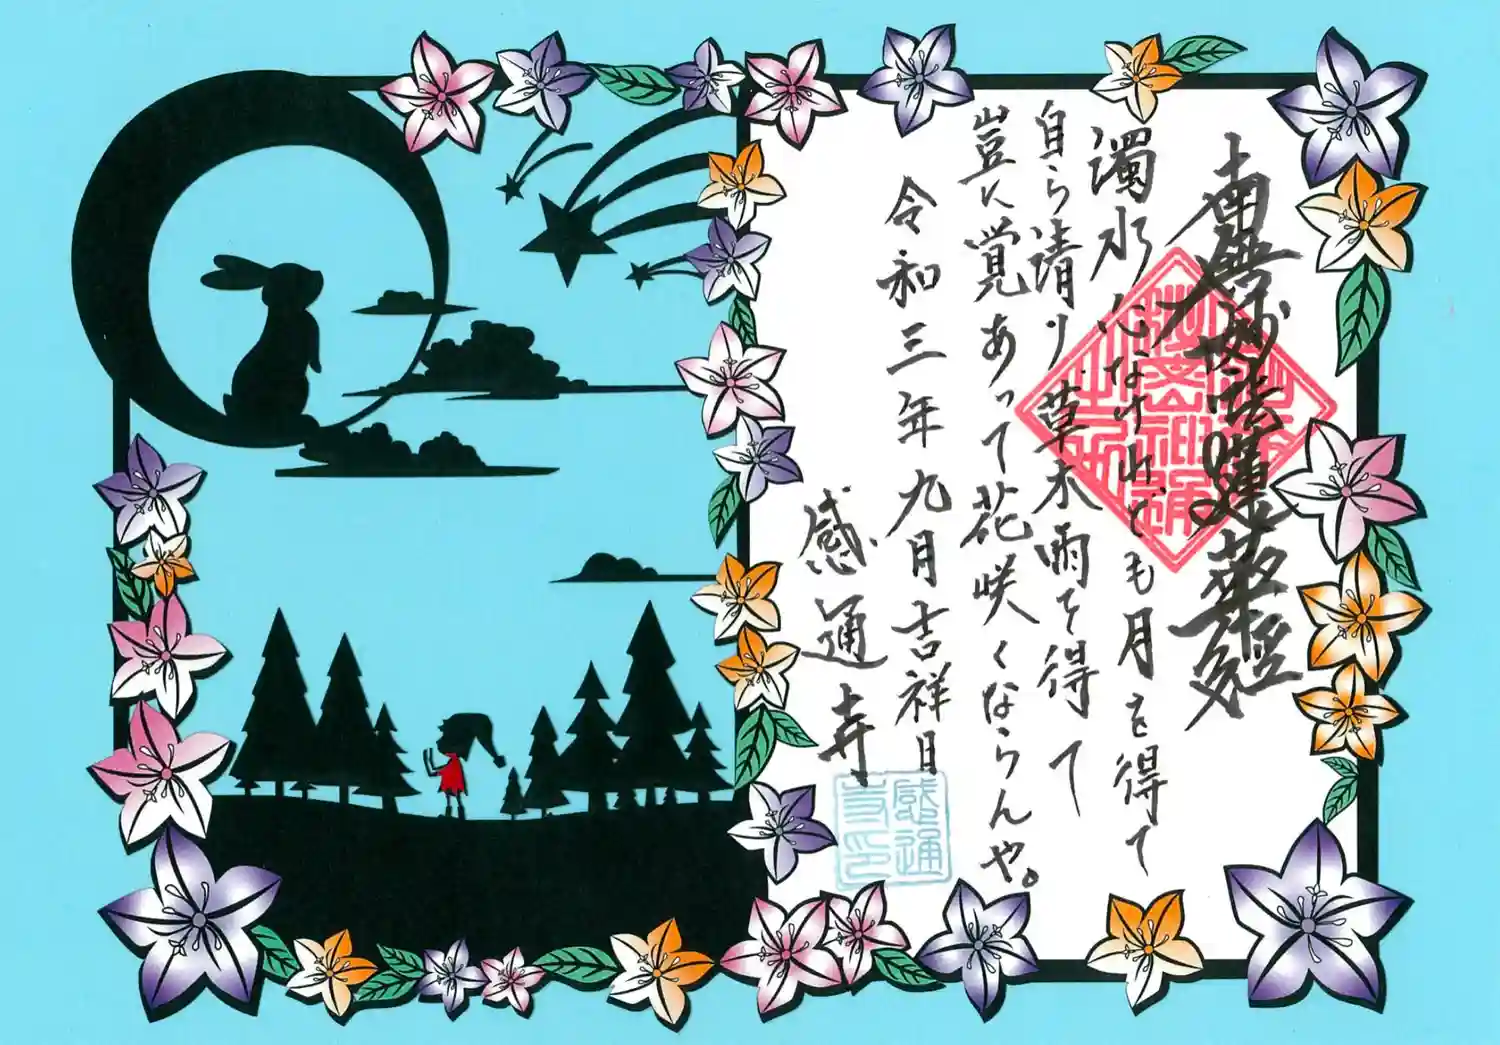 南無妙法蓮華経
濁水心なけれども月を得て
自ら清り草木雨を得て
豈に覚あって花咲くならんや。
令和三年九月吉祥日
感通寺
感通
寺印